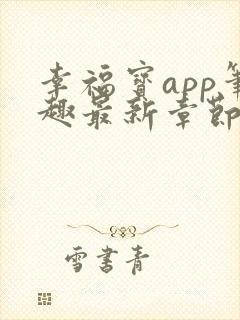 幸福宝app笔
趣最新章节
雪书青